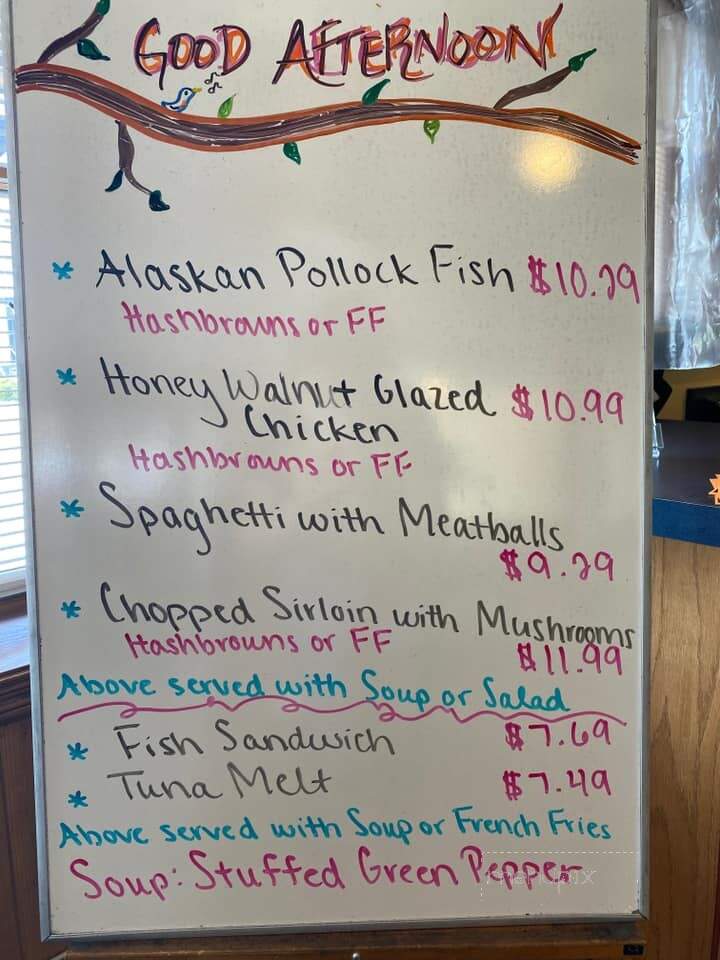 GOOD AFTERNOON
* Alaskan Pollock Fish $10.29
Hashbrowns or FF
* Honey Walnut Glazed $10.99
Chicken
Hashbrowns or FF
* Spaghetti with Meatballs
$9.29
* Chopped Sirloin with Mushrooms
Hashbrowns or FF $11.99
Above served with Soup or Salad
* Fish Sandwich $7.69
* Tuna Melt $7.49
Above served with Soup or French Fries
Soup: Stuffed Green Pepper
menupix